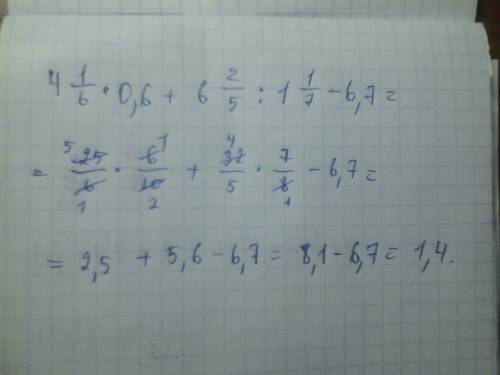 4 1/6 · 0,6 + 6 2/5 : 1 1/7 - 6,7 =
= 25/6 · 6/10 + 32/5 · 7/8 - 6,7 =
= 2,5 + 5,6 - 6,7 = 8,1 - 6,7 = 1,4.